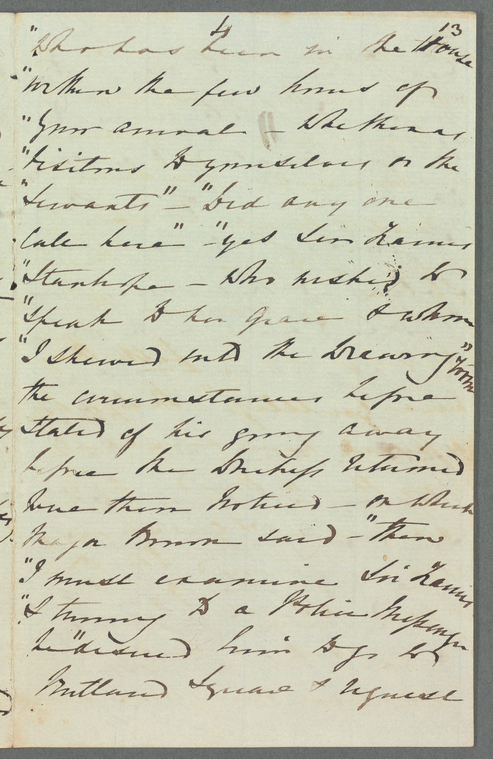 4 13
"Who has been in the House
"within the few hours of
"your arrival – whether as
"visitors to yourselves or the
"servants" – "Did any one
call here" – "yes Sir James
"Stanhope – who wished to
"speak to her Grace & whom
"I shewed into the Drawing room"
the circumstances before
stated of his going away
before the Duchess returned
were then noticed – on which
Major said – "then
"I must examine Sir James
"& turning to a Police Messenger
he desired him to go to
Rutland Square & request